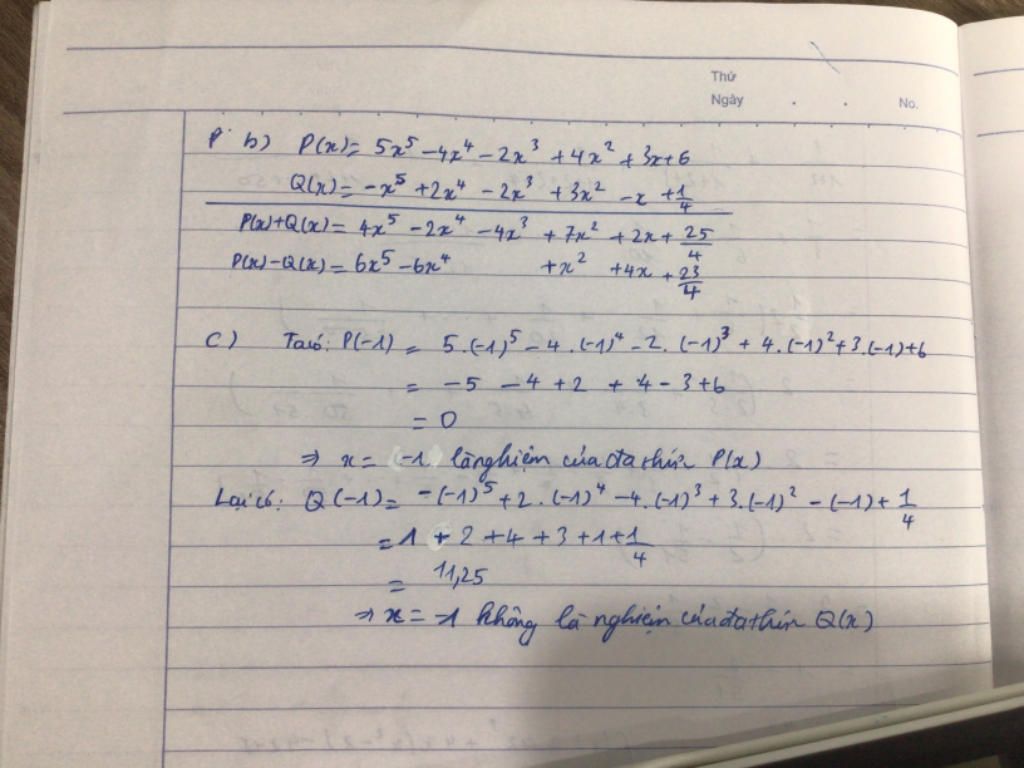 Thứ
Ngày . . No.
b) P(x) = 5x⁵ - 4x⁴ - 2x³ + 4x² + 3x + 6
Q(x) = -x⁵ + 2x⁴ - 2x³ + 3x² - x + 1/4
P(x)+Q(x) = 4x⁵ - 2x⁴ - 4x³ + 7x² + 2x + 25/4
P(x)-Q(x) = 6x⁵ - 6x⁴ + x² + 4x + 23/4
c) Ta có: P(-1) = 5.(-1)⁵ - 4.(-1)⁴ - 2.(-1)³ + 4.(-1)² + 3.(-1) + 6
= -5 - 4 + 2 + 4 - 3 + 6
= 0
⇒ x = -1 là nghiệm của đa thức P(x)
Lại có: Q(-1) = -(-1)⁵ + 2.(-1)⁴ - 4.(-1)³ + 3.(-1)² - (-1) + 1/4
= 1 + 2 + 4 + 3 + 1 + 1/4
= 11,25
⇒ x = -1 không là nghiệm của đa thức Q(x)